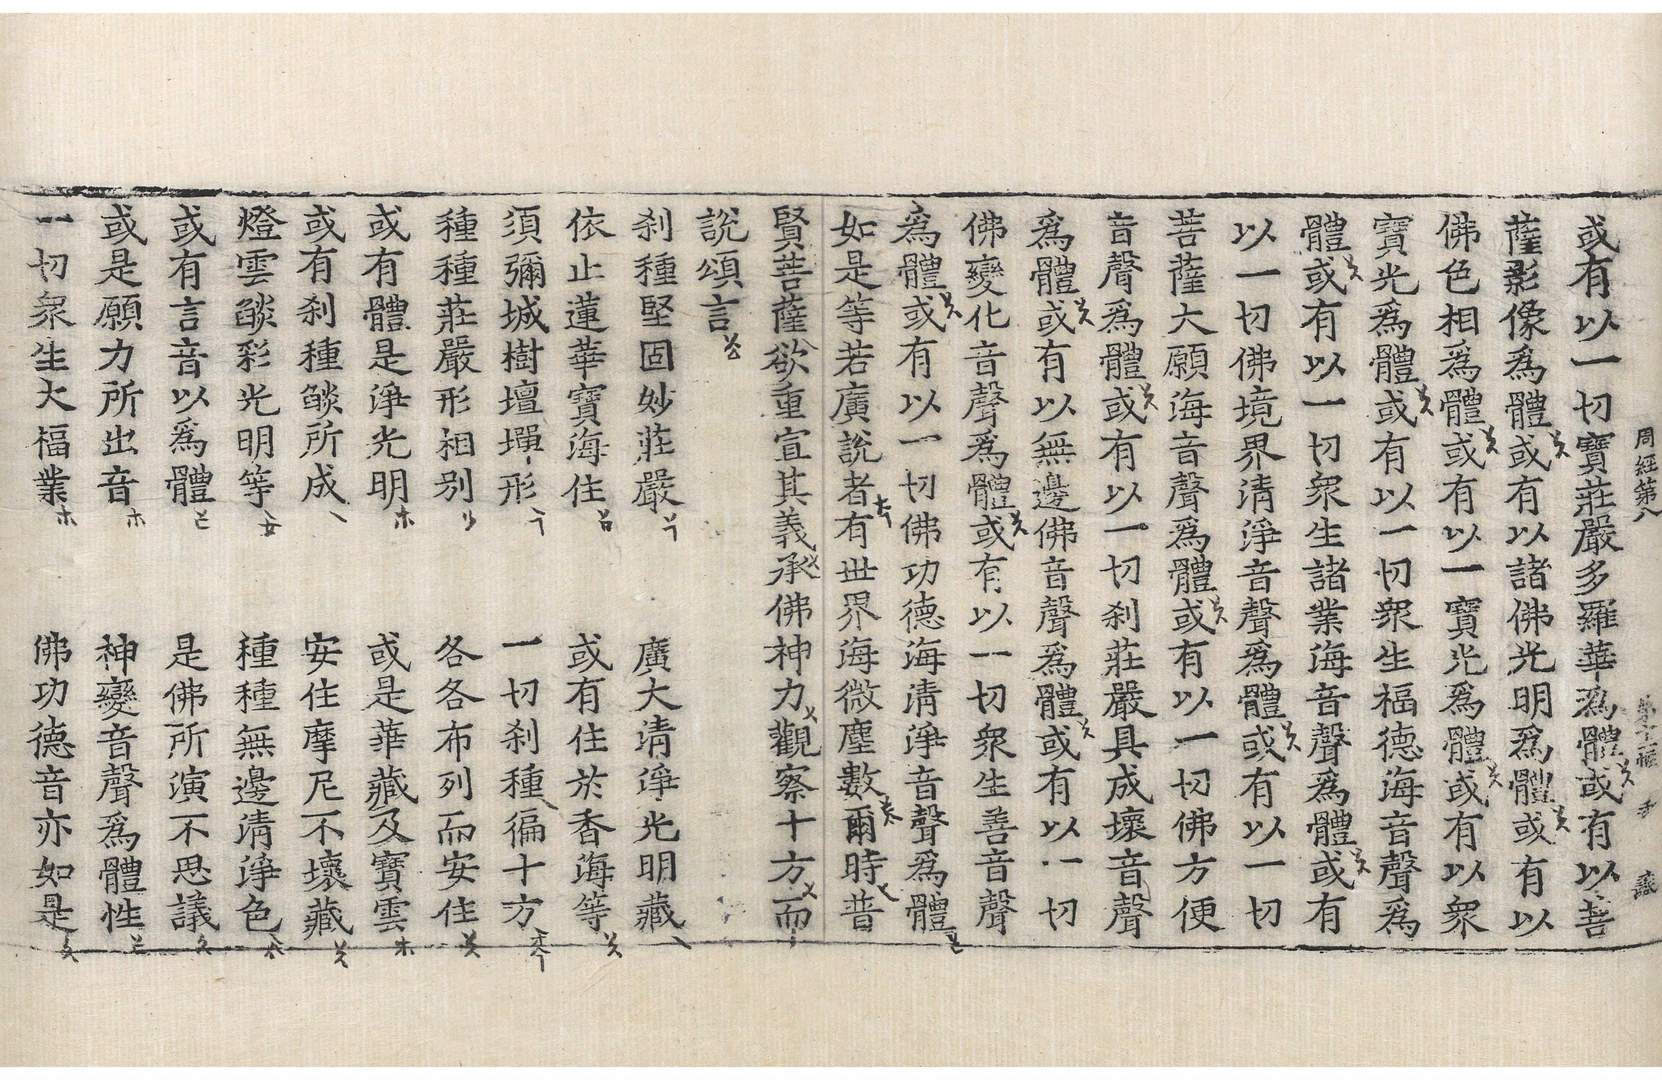 周經第八
或有以一切寶莊嚴多羅華爲體或有以菩
薩影像爲體或有以諸佛光明爲體或有以
佛色相爲體或有以一寶光爲體或有以衆
寶光爲體或有以一切衆生福德海音聲爲
體或有以一切衆生諸業海音聲爲體或有
以一切佛境界清淨音聲爲體或有以一切
菩薩大願海音聲爲體或有以一切佛方便
音聲爲體或有以一切刹莊嚴具成壞音聲
爲體或有以無邊佛音聲爲體或有以一切
佛變化音聲爲體或有以一切衆生善音聲
爲體或有以一切佛功德海清淨音聲爲體
如是等若廣說者有世界海微塵數爾時普
賢菩薩欲重宣其義承佛神力觀察十方而
說頌言
刹種堅固妙莊嚴　廣大清淨光明藏
依止蓮華寶海住　或有住於香海等
須彌城樹壇墠形　一切刹種徧十方
種種莊嚴形相別　各各布列而安住
或有體是淨光明　或是華藏及寶雲
或有刹種燄所成　安住摩尼不壞藏
燈雲燄彩光明等　種種無邊清淨色
或有言音以爲體　是佛所演不思議
或是願力所出音　神變音聲爲體性
一切衆生大福業　佛功德音亦如是